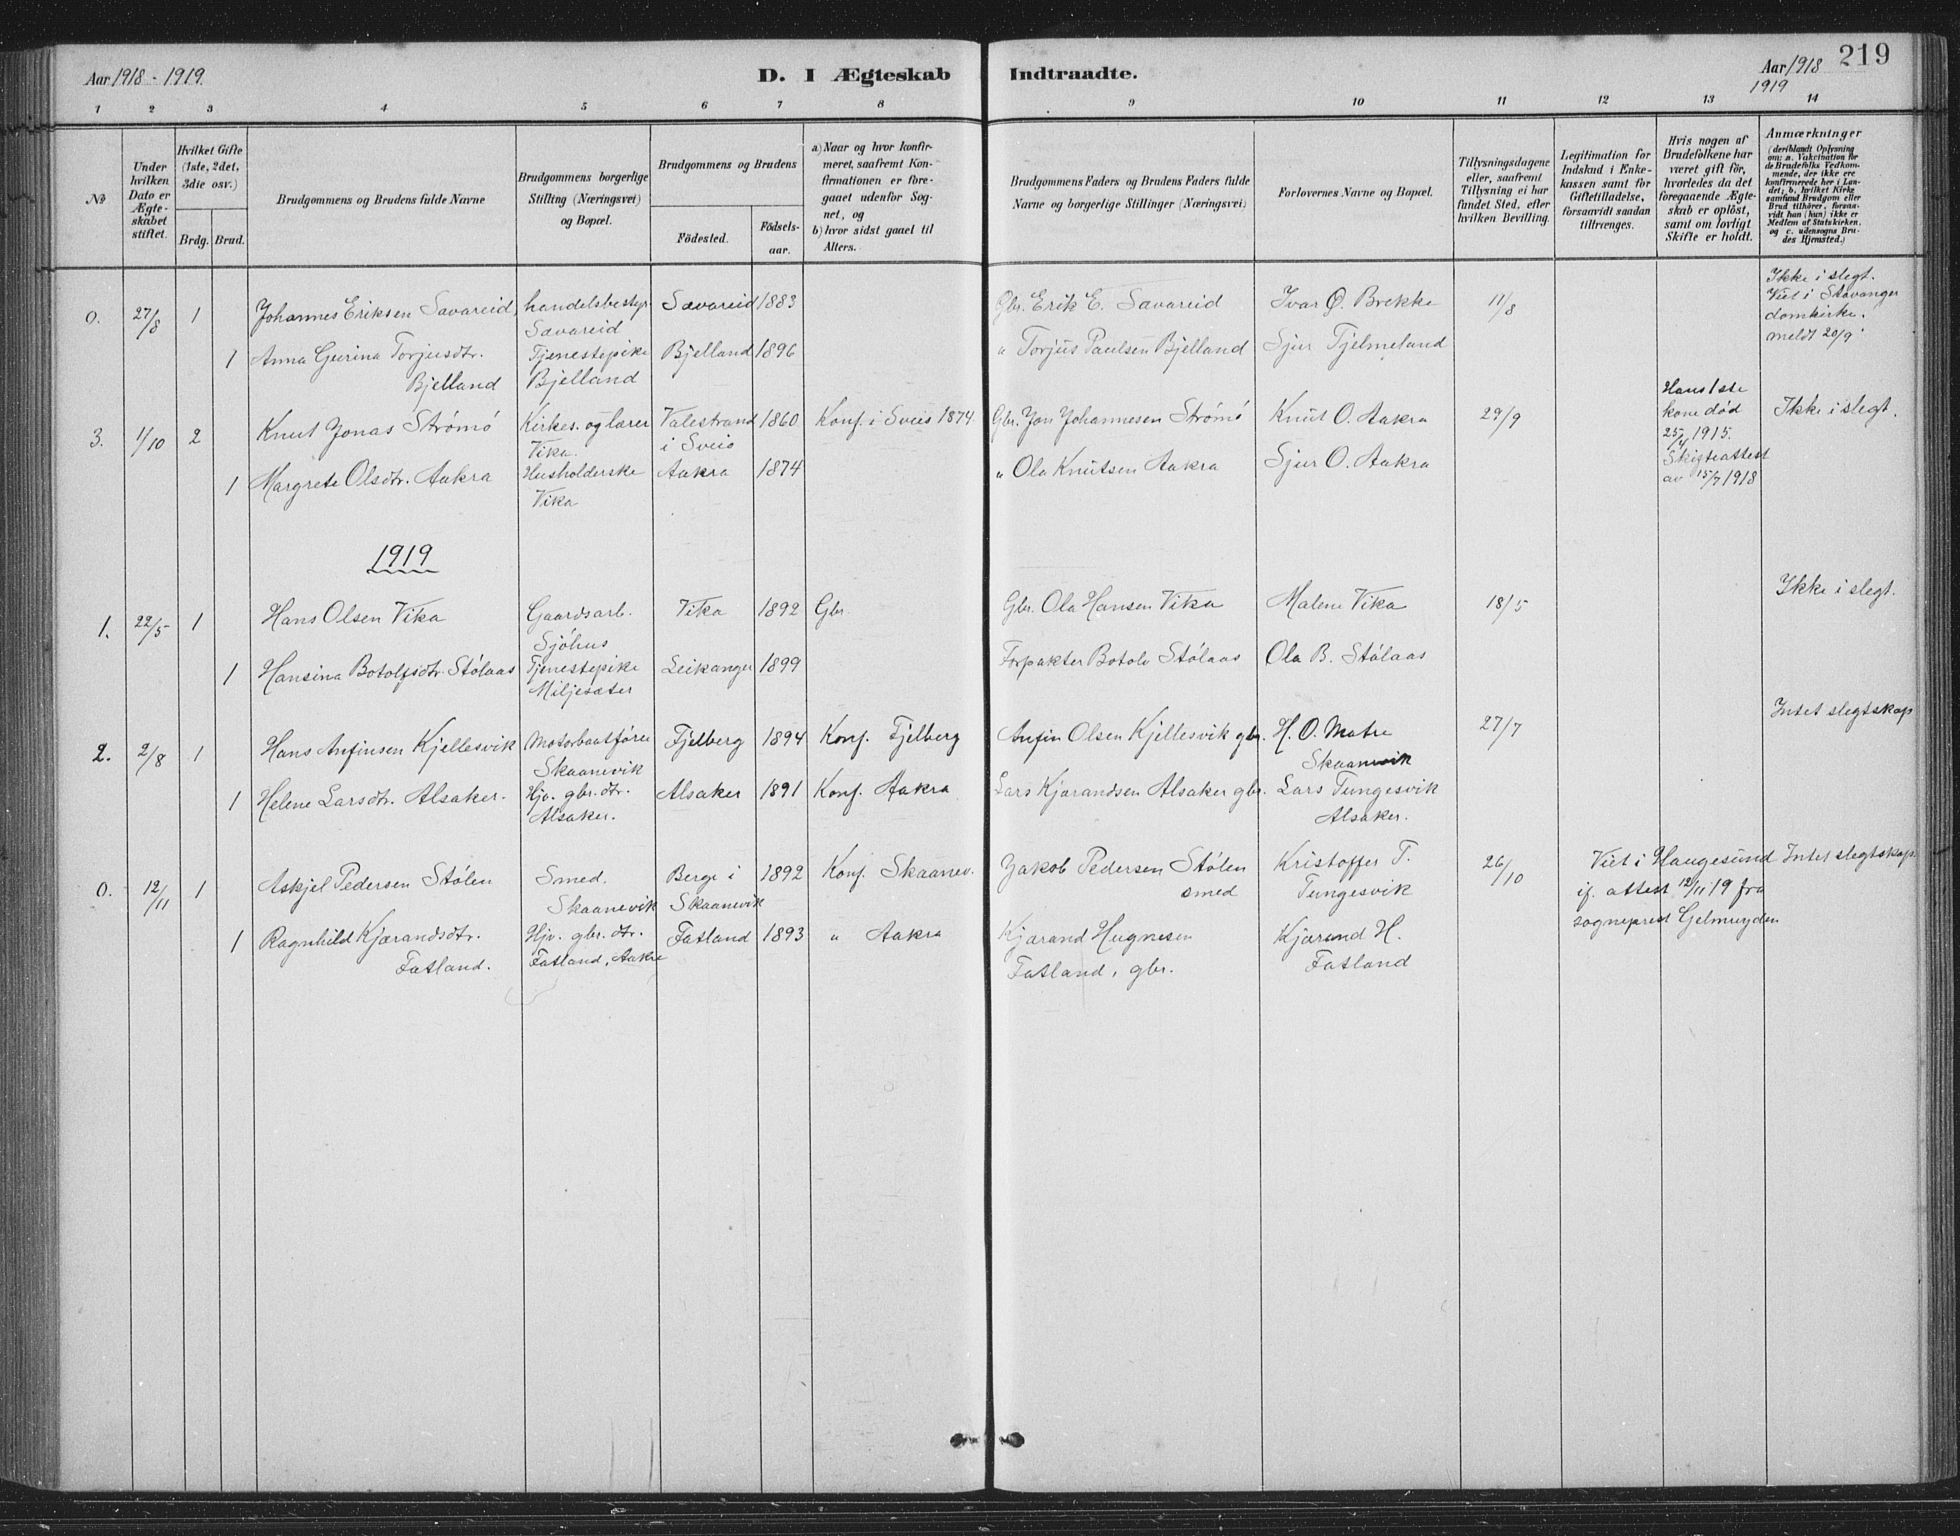 Aar 1918 - 1919.
D. I Ægteskab Indtraadte.
Aar 1918 219
1919
1 2 3 4 5 6 7 8 9 10 11 12 13 14
No
Under hvilken Dato er Ægteskabet stiftet.
Hvilket Gifte (1ste, 2det, 3die osv.)
Brdg. Brud.
Brudgommens og Brudens fulde Navne
Brudgommens borgerlige Stilling (Næringsvei) og Bopæl.
Brudgommens og Brudens
Fødested.
Fødsels-aar.
a) Naar og hvor konfirmeret, saafremt Konfirmationen er foregaaet udenfor Sognet, og
b) hvor sidst gaaet til Alters.
Brudgommens Faders og Brudens Faders fulde Navne og borgerlige Stillinger (Næringsvei)
Forlovernes Navne og Bopæl.
Tillysningsdagene eller, saafremt Tillysning ei har fundet Sted, efter hvilken Bevilling.
Legitimation for Indskud i Enkekassen samt for Giftetilladelse, forsaavidt saadan tiltrænges.
Hvis nogen af Brudefolkene har været gift før, hvorledes da det foregaaende Ægteskab er opløst, samt om lovligt Skifte er holdt.
Anmærkninger
(deriblandt Oplysning om: a. Vakcination for de Brudefolks Vedkommende, der ikke ere konfirmerede her i Landet; b. hvilket Kirkesamfund Brudgom eller Brud tilhører, forsaavidt han (hun) ikke er Medlem af Statskirken, og c. udensogns Brudes Hjemsted.)
0. 27/8 1 Johannes Eriksen Savareid, handelsbestyr. Savareid Savareid 1883 Gbr. Erik E. Savareid Ivar Ø. Brekke 11/8 Ikke i slegt. Viet i Stavanger domkirke. meldt 20/9
1 Anna Gurina Torjusdtr. Bjelland Tjenestepike Bjelland Bjelland 1896 " Torjus Paulsen Bjelland Sjur Tjelmeland
3. 1/10 2 Knut Jonas Strømø Kirkes. og lærer Vika. Valestrand i Sveio 1860 Konf. i Sveio 1874. Gbr. Jon Johannesen Strømø Knut O. Aakra 29/9 Hans 1ste kone død 25/4 1915. Skifteattest av 15/7 1918 Ikke i slegt.
1 Margrete Olsdtr. Aakra Husholderske Vika Aakra 1874 " Ola Knutsen Aakra Sjur O. Aakra
1919
1. 22/5 1 Hans Olsen Vika Gaardsarb. Sjøhus Vika 1892 Gbr. Gbr. Ola Hansen Vika Malene Vika 18/5 Ikke i slegt.
1 Hansina Botolfsdtr. Stølaas Tjenestepike Miljesæter Leikanger 1899 Forpakter Botolv Stølaas Ola B. Stølaas
2. 2/8 1 Hans Anfinsen Kjellesvik Motorbaatfører Skaanevik Fjelberg 1894 Konf. Fjelberg Anfin Olsen Kjellesvik gbr. H. O. Matre Skaanevik 27/7 Intet slegtskap
1 Helene Larsdtr. Alsaker. Hjv. gbr. dtr. Alsaker. Alsaker 1891 Konf. Aakra Lars Kjærandsen Alsaker gbr. Lars Tungesvik Alsaker.
0. 12/11 1 Askjel Pedersen Stølen Smed. Skaanevik Berge i Skaanevik 1892 Konf. Skaanev. Jakob Pedersen Stølen smed Kristoffer T. Tungesvik 26/10 Viet i Haugesund if. attest 12/11 19 fra sogneprest Gelmuyden Intet slegtskap.
1 Ragnhild Kjærandsdtr. Fatland. Hjv. gbr. dtr. Fatland, Aakre Fatland 1893 " Aakra Kjærand Hugnesen Fatland, gbr. Kjærand H. Fatland